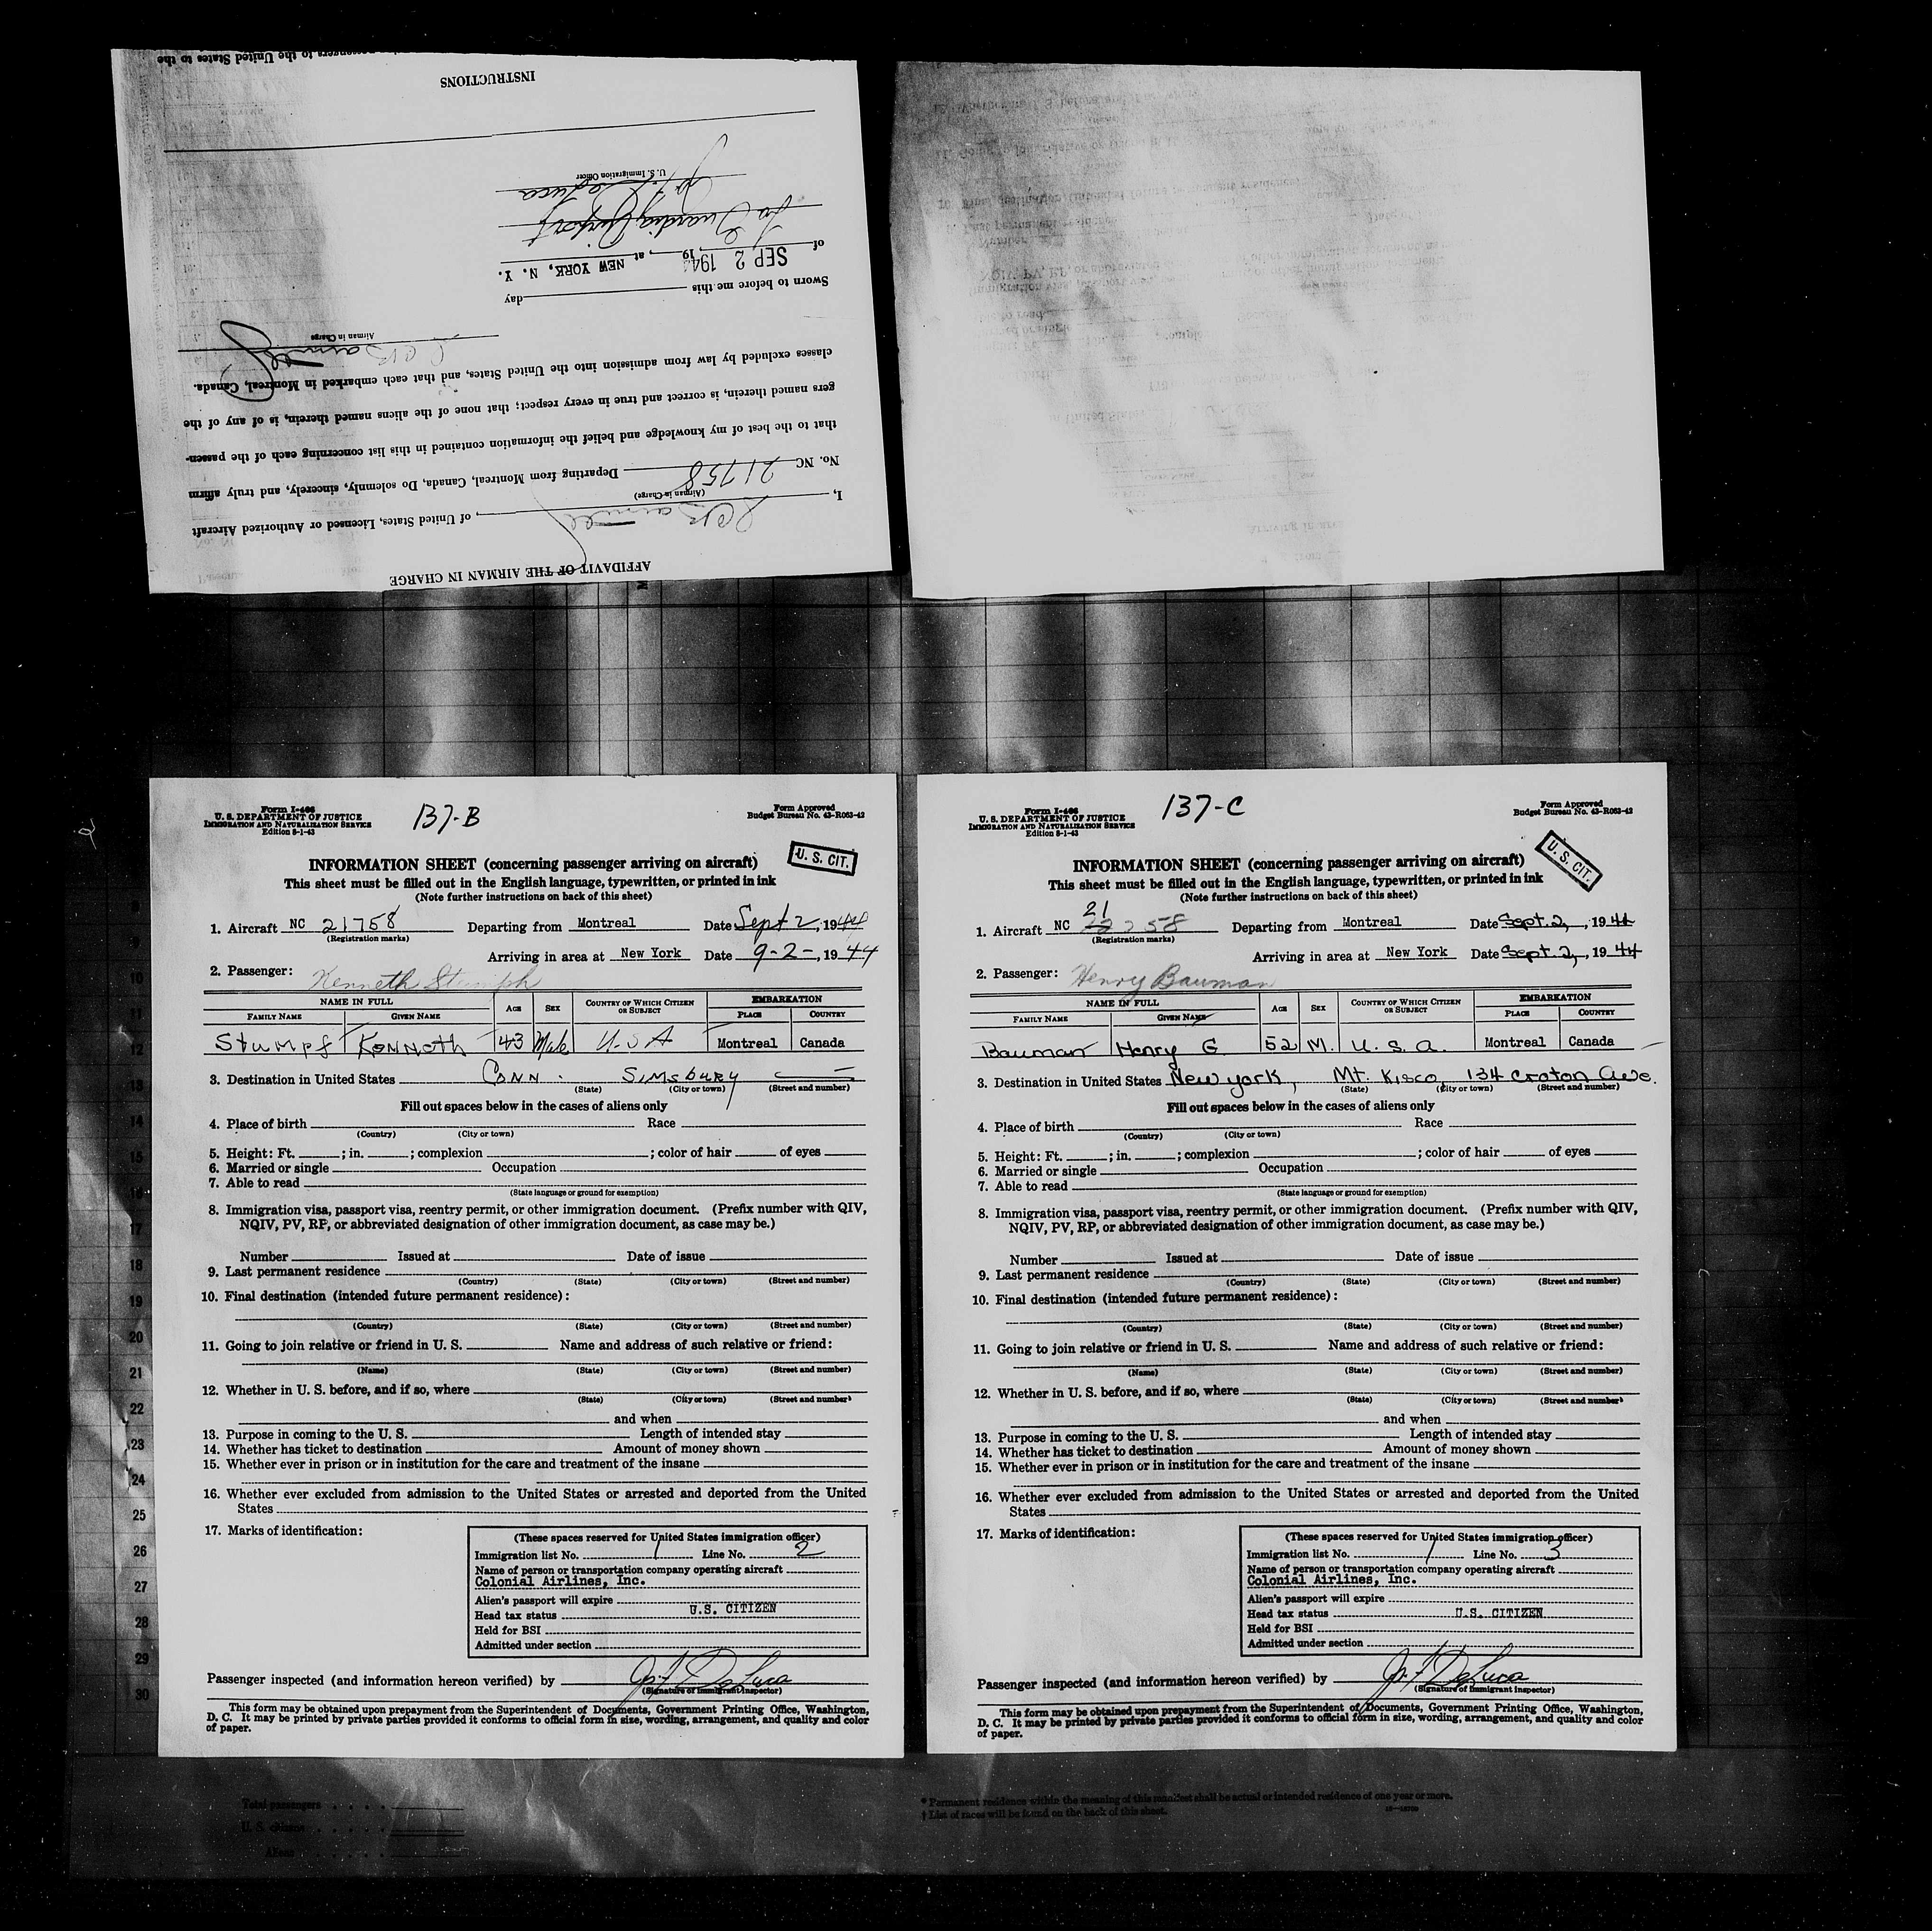 AFFIDAVIT OF THE AIRMAN IN CHARGE
I, , of United States, Licensed or Authorized Aircraft
(Airman in Charge)
No. NC 21758 Departing from Montreal, Canada, Do solemnly, sincerely, and truly affirm
that to the best of my knowledge and belief the information contained in this list concerning each of the passen-
gers named therein, is correct and true in every respect; that none of the aliens named therein, is of any of the
classes excluded by law from admission into the United States, and that each embarked in Montreal, Canada.
Airman in Charge
Sworn to before me this day
of SEP 2 194 19 , at NEW YORK, N. Y.
La Guardia Airport
U. S. Immigration Officer
INSTRUCTIONS
Form I-466
U. S. DEPARTMENT OF JUSTICE
IMMIGRATION AND NATURALIZATION SERVICE
Edition 8-1-43
137-B
Form Approved
Budget Bureau No. 43-R063-42
U. S. CIT.
INFORMATION SHEET (concerning passenger arriving on aircraft)
This sheet must be filled out in the English language, typewritten, or printed in ink
(Note further instructions on back of this sheet)
1. Aircraft NC 21758 Departing from Montreal Date Sept 2, 1944
(Registration marks)
Arriving in area at New York Date 9-2-, 1944
2. Passenger: Kenneth Stumph
NAME IN FULL AGE SEX COUNTRY OF WHICH CITIZEN OR SUBJECT EMBARKATION
FAMILY NAME GIVEN NAME PLACE COUNTRY
Stumpf Kenneth 43 Male U.S.A Montreal Canada
3. Destination in United States Conn. Simsbury
(State) (City or town) (Street and number)
Fill out spaces below in the cases of aliens only
4. Place of birth Race
(Country) (City or town)
5. Height: Ft. ; in. ; complexion ; color of hair of eyes
6. Married or single Occupation
7. Able to read
(State language or ground for exemption)
8. Immigration visa, passport visa, reentry permit, or other immigration document. (Prefix number with QIV,
NQIV, PV, RP, or abbreviated designation of other immigration document, as case may be.)
Number Issued at Date of issue
9. Last permanent residence
(Country) (State) (City or town) (Street and number)
10. Final destination (intended future permanent residence):
(Country) (State) (City or town) (Street and number)
11. Going to join relative or friend in U. S. Name and address of such relative or friend:
(Name) (State) (City or town) (Street and number)
12. Whether in U. S. before, and if so, where
(State) (City or town) (Street and number)
and when
13. Purpose in coming to the U. S. Length of intended stay
14. Whether has ticket to destination Amount of money shown
15. Whether ever in prison or in institution for the care and treatment of the insane
16. Whether ever excluded from admission to the United States or arrested and deported from the United
States
17. Marks of identification:
(These spaces reserved for United States immigration officer)
Immigration list No. 1 Line No. 2
Name of person or transportation company operating aircraft
Colonial Airlines, Inc.
Alien's passport will expire
Head tax status U.S. CITIZEN
Held for BSI
Admitted under section
Passenger inspected (and information hereon verified) by DeLuca
(Signature of Immigrant Inspector)
This form may be obtained upon prepayment from the Superintendent of Documents, Government Printing Office, Washington,
D. C. It may be printed by private parties provided it conforms to official form in size, wording, arrangement, and quality and color
of paper.
Form I-466
U. S. DEPARTMENT OF JUSTICE
IMMIGRATION AND NATURALIZATION SERVICE
Edition 8-1-43
137-C
Form Approved
Budget Bureau No. 43-R063-42
U. S. CIT.
INFORMATION SHEET (concerning passenger arriving on aircraft)
This sheet must be filled out in the English language, typewritten, or printed in ink
(Note further instructions on back of this sheet)
21
1. Aircraft NC 758 Departing from Montreal Date Sept. 2, 1944
(Registration marks)
Arriving in area at New York Date Sept. 2, 1944
2. Passenger: Henry Bauman
NAME IN FULL AGE SEX COUNTRY OF WHICH CITIZEN OR SUBJECT EMBARKATION
FAMILY NAME GIVEN NAME PLACE COUNTRY
Bauman Henry G. 52 M. U. S. A. Montreal Canada
3. Destination in United States New York, Mt. Kisco 134 Croton Ave.
(State) (City or town) (Street and number)
Fill out spaces below in the cases of aliens only
4. Place of birth Race
(Country) (City or town)
5. Height: Ft. ; in. ; complexion ; color of hair of eyes
6. Married or single Occupation
7. Able to read
(State language or ground for exemption)
8. Immigration visa, passport visa, reentry permit, or other immigration document. (Prefix number with QIV,
NQIV, PV, RP, or abbreviated designation of other immigration document, as case may be.)
Number Issued at Date of issue
9. Last permanent residence
(Country) (State) (City or town) (Street and number)
10. Final destination (intended future permanent residence):
(Country) (State) (City or town) (Street and number)
11. Going to join relative or friend in U. S. Name and address of such relative or friend:
(Name) (State) (City or town) (Street and number)
12. Whether in U. S. before, and if so, where
(State) (City or town) (Street and number)
and when
13. Purpose in coming to the U. S. Length of intended stay
14. Whether has ticket to destination Amount of money shown
15. Whether ever in prison or in institution for the care and treatment of the insane
16. Whether ever excluded from admission to the United States or arrested and deported from the United
States
17. Marks of identification:
(These spaces reserved for United States immigration officer)
Immigration list No. 1 Line No. 3
Name of person or transportation company operating aircraft
Colonial Airlines, Inc.
Alien's passport will expire
Head tax status U.S. CITIZEN
Held for BSI
Admitted under section
Passenger inspected (and information hereon verified) by DeLuca
(Signature of Immigrant Inspector)
This form may be obtained upon prepayment from the Superintendent of Documents, Government Printing Office, Washington,
D. C. It may be printed by private parties provided it conforms to official form in size, wording, arrangement, and quality and color
of paper.
Total passengers
U. S. citizens
Aliens
* Permanent residence within the meaning of this manifest shall be actual or intended residence of one year or more.
† List of races will be found on the back of this sheet.